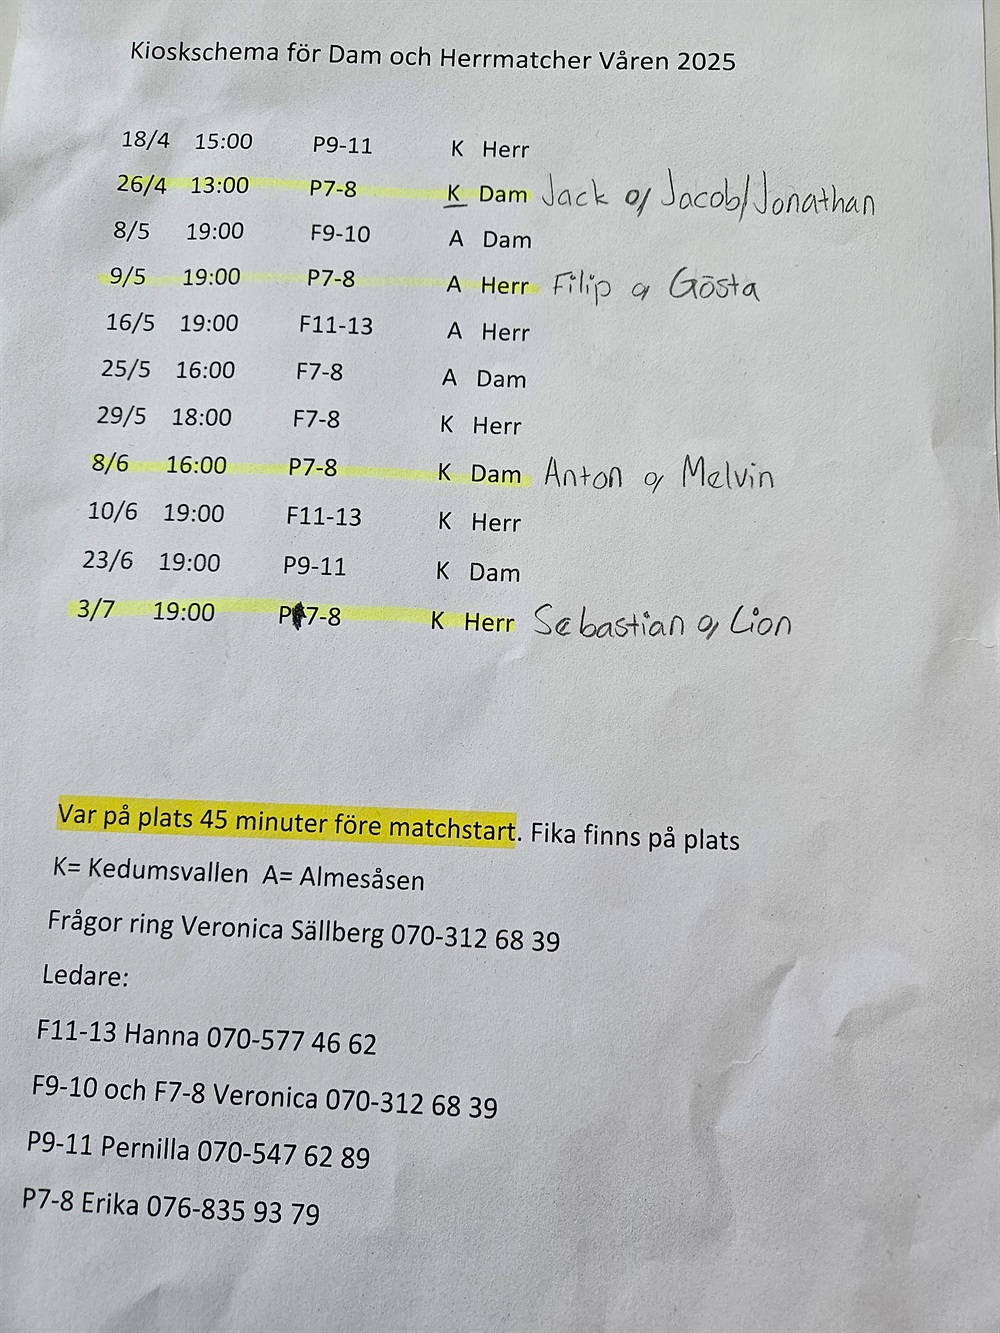 Kioskschema för Dam och Herrmatcher Våren 2025
18/4 15:00 P9-11 K Herr
26/4 13:00 P7-8 K Dam Jack o/ Jacob/Jonathan
8/5 19:00 F9-10 A Dam
9/5 19:00 P7-8 A Herr Filip o Gösta
16/5 19:00 F11-13 A Herr
25/5 16:00 F7-8 A Dam
29/5 18:00 F7-8 K Herr
8/6 16:00 P7-8 K Dam Anton o/ Melvin
10/6 19:00 F11-13 K Herr
23/6 19:00 P9-11 K Dam
3/7 19:00 P7-8 K Herr Sebastian o/ Lion
Var på plats 45 minuter före matchstart. Fika finns på plats
K= Kedumsvallen A= Almesåsen
Frågor ring Veronica Sällberg 070-312 68 39
Ledare:
F11-13 Hanna 070-577 46 62
F9-10 och F7-8 Veronica 070-312 68 39
P9-11 Pernilla 070-547 62 89
P7-8 Erika 076-835 93 79